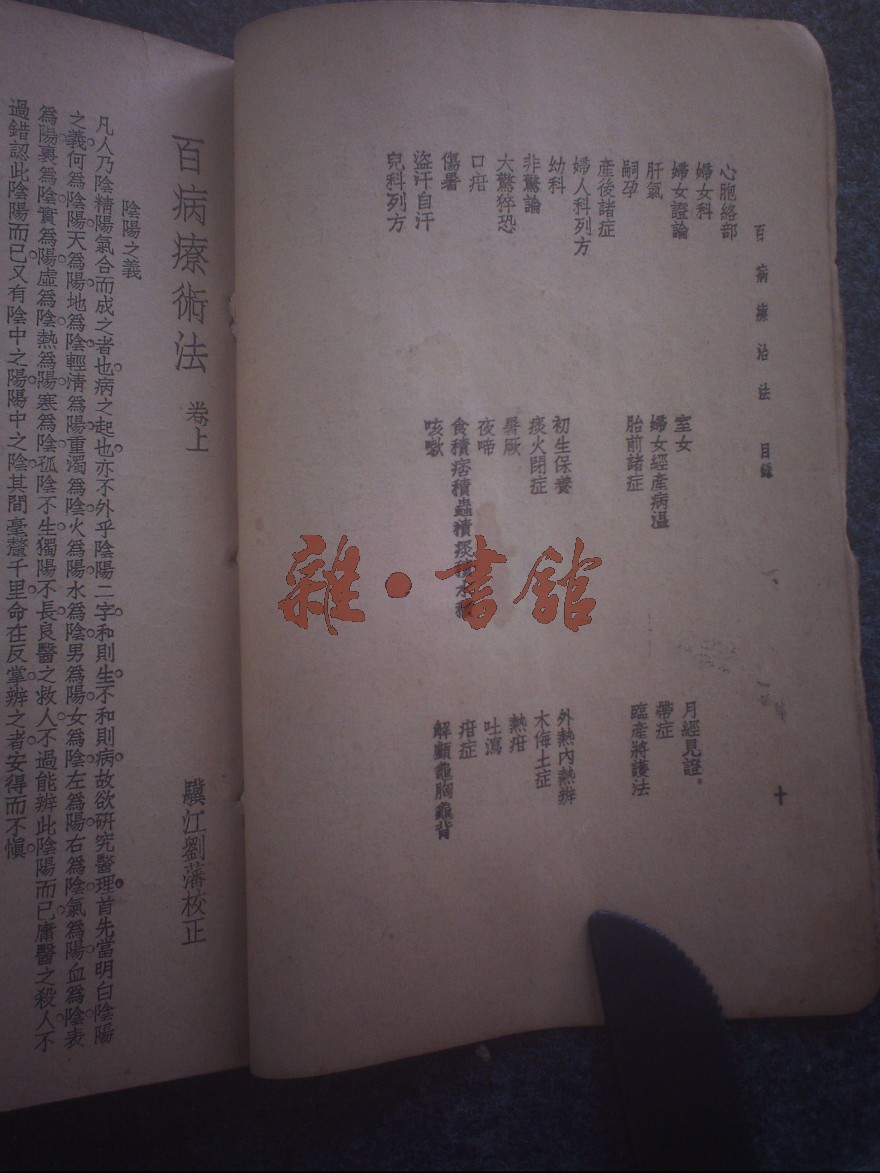 百病療治法 目錄 十
心胞絡部
婦女科
婦女證論
肝氣
嗣孕
產後諸症
婦人科列方
幼科
非驚論
大驚猝恐
口疳
傷暑
盜汗自汗
兒科列方
室女
婦女經產病溫
胎前諸症
初生保養
痰火閉症
暑厥
夜啼
食積痞積蟲積痰積水積
咳嗽
月經見證
帶症
臨產將護法
外熱內熱辨
木侮土症
熱疳
吐瀉
疳症
解顱龜胸龜背
雜·書館
百病療術法 卷上
驥江劉藩校正
陰陽之義
凡人乃陰精陽氣合而成之者也病之起也亦不外乎陰陽二字和則生不和則病故欲研究醫理首先當明白陰陽
之義何為陰陽天為陽地為陰輕清為陽重濁為陰火為陽水為陰男為陽女為陰左為陽右為陰氣為陽血為陰表
為陽裏為陰實為陽虛為陰熱為陽寒為陰孤陰不生獨陽不長良醫之救人不過能辨此陰陽而已庸醫之殺人不
過錯認此陰陽而已又有陰中之陽陽中之陰其間毫釐千里命在反掌辨之者安得而不愼